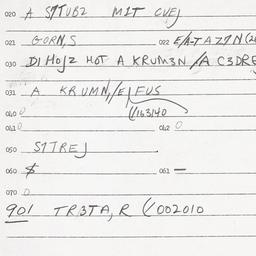 020 A S7TUB2 MIT CUEJ
021 GORN,S 022 E/A-T A27N(2
030 DI HOJZ HOT A KRUM3N /A C3DRE
031 A. KRUMN,/EJFUS
040 0 (/163140
041 0 042 0
050 S7TREJ
060 $ 061 —
070 0
901 TR3TA,R (/002010